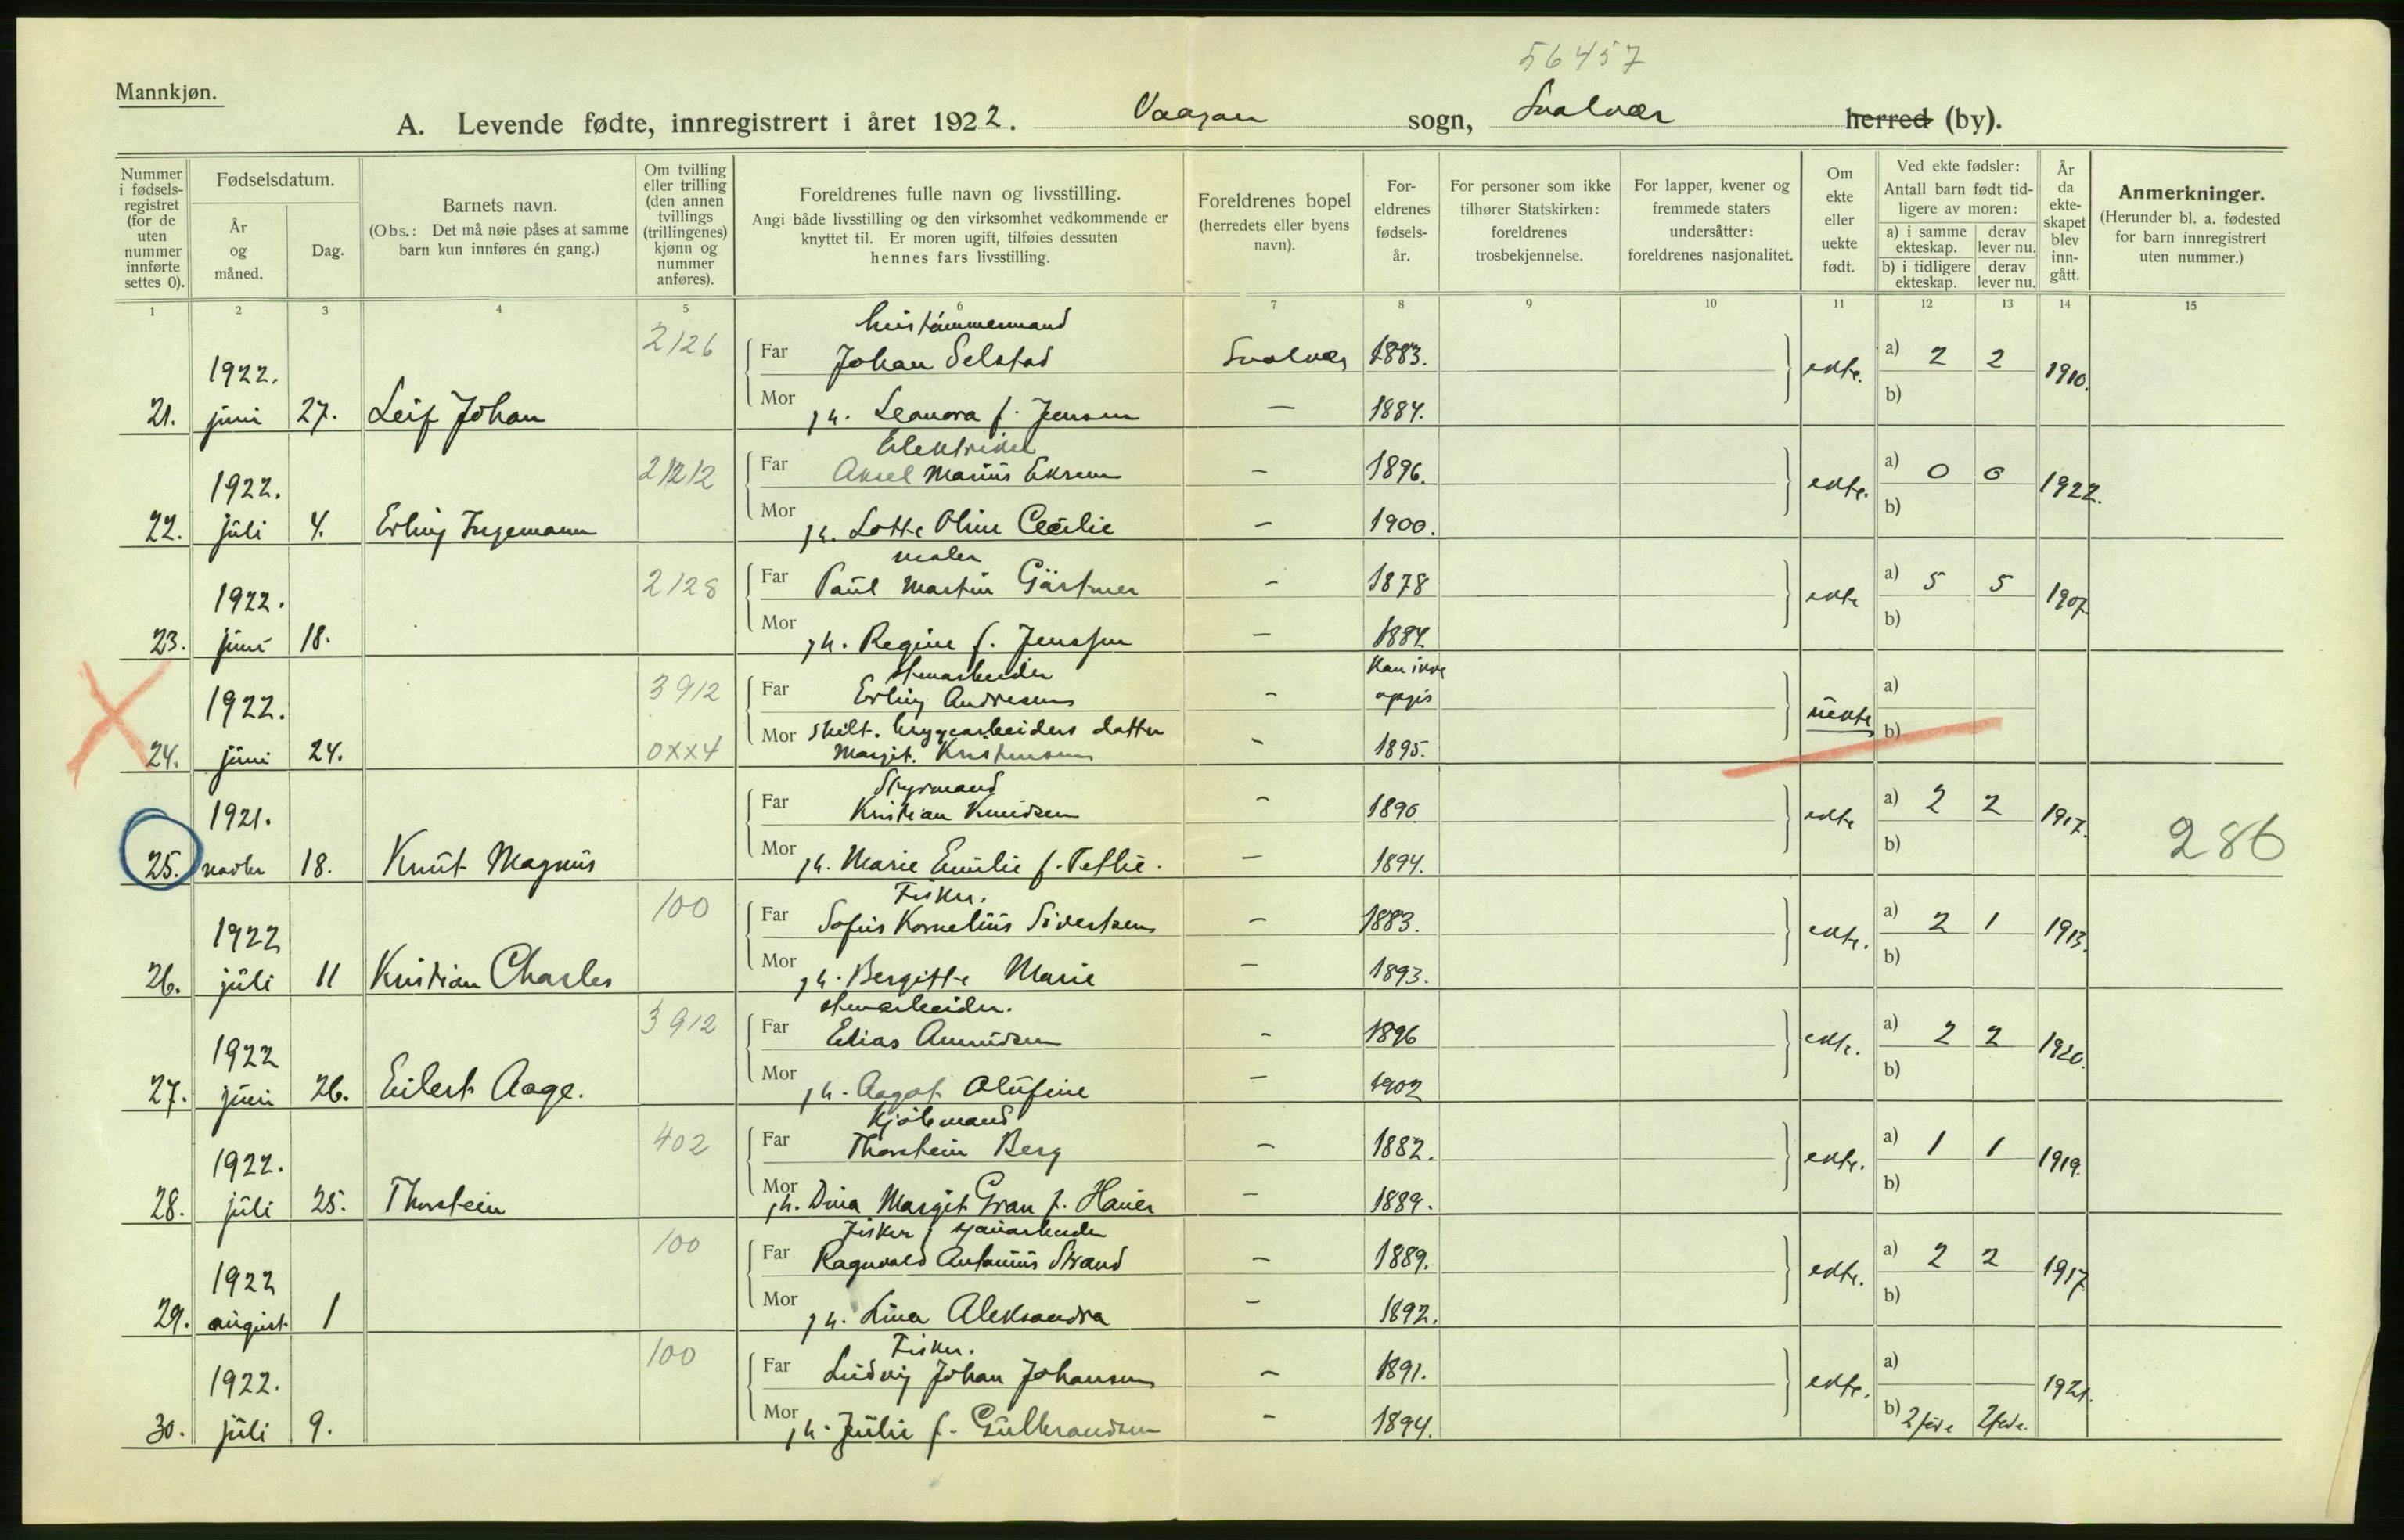 56457
Mannkjøn.
A. Levende fødte, innregistrert i året 1922. Vaagan sogn, Svolvær herred (by).
Nummer i fødsels-registret (for de uten nummer innførte settes 0).
Fødselsdatum.
År og måned.
Dag.
Barnets navn.
(Obs.: Det må nøie påses at samme barn kun innføres én gang.)
Om tvilling eller trilling (den annen tvillings (trillingenes) kjønn og nummer anføres).
Foreldrenes fulle navn og livsstilling.
Angi både livsstilling og den virksomhet vedkommende er knyttet til. Er moren ugift, tilføies dessuten hennes fars livsstilling.
Foreldrenes bopel (herredets eller byens navn).
For-eldrenes fødsels-år.
For personer som ikke tilhører Statskirken: foreldrenes trosbekjennelse.
For lapper, kvener og fremmede staters undersåtter: foreldrenes nasjonalitet.
Om ekte eller uekte født.
Ved ekte fødsler:
Antall barn født tid-ligere av moren:
a) i samme ekteskap. derav lever nu.
b) i tidligere ekteskap. derav lever nu.
År da ekte-skapet blev inn-gått.
Anmerkninger.
(Herunder bl. a. fødested for barn innregistrert uten nummer.)
1 2 3 4 5 6 7 8 9 10 11 12 13 14 15
hustømmermand
2126
Far Johan Selstad Svolvær 1883. a) 2 2
1922. ekte. 1910.
21. juni 27. Leif Johan Mor h. Leonora f. Jensen — 1884. b)
Elektriker
2212
Far Aksel Marius — 1896. a) 0 0
1922. ekte. 1922.
22. juli 4. Erling Ingemann Mor h. Lotte Oline Cecilie — 1900. b)
maler
2128
Far Paul Martin Gärtner — 1878 a) 5 5
1922. ekte 1907.
23. juni 18. Mor h. Regine f. Jenssen — 1884 b)
stenarbeider Kan ikke
3912
Far Erling Andresen — opgis a)
1922. uekte
Mor skilt. bryggearbeiders datter b)
24. juni 24. 0xx4 Margit Kristensen — 1895.
Styrmand
Far Kristian Knudsen — 1890 a) 2 2
1921. ekte 1917.
25. novbr 18. Knut Magnus Mor h. Marie Emilie f. — 1894. b) 286
Fisker.
100
Far Sofus Kornelius Sivertsen — 1883. a) 2 1
1922 ekte. 1913.
26. juli 11 Kristian Charles Mor h. Bergitte Marie — 1893. b)
stenarbeider.
3912
Far Elias Amundsen — 1896 a) 2 2
1922 ekte. 1920.
27. juni 26. Eilert Aage. Mor h. Aagot Olufine — 1902 b)
Kjøbmand
402
Far Thorstein Berg — 1882. a) 1 1
1922. ekte. 1919.
28. juli 25. Thorstein Mor h. Dina Margit Gran f. — 1889. b)
Fisker, sjauarbeider
100
Far Ragnvald Antonius Strand — 1889. a) 2 2
1922 ekte. 1917
29. august 1 Mor h. Lina Aleksandra — 1892. b)
Fisker.
100
Far Ludvig Johan Johansen — 1891. a)
1922. ekte. 1921.
30. juli 9. Mor h. Julie f. Gulbrandsen — 1894. b) 2